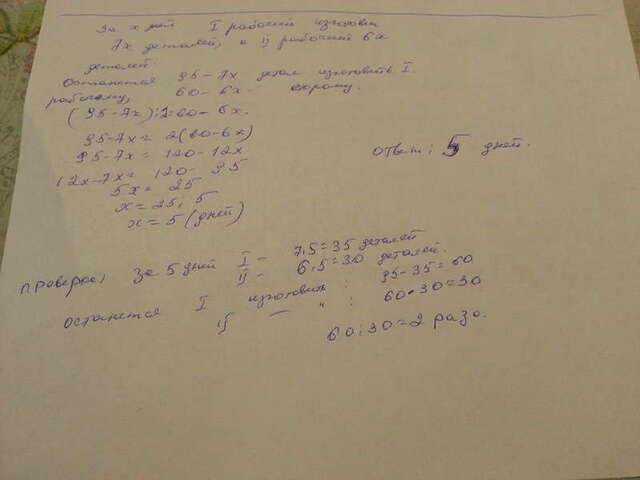 За x дней I рабочий изготовил
7x деталей, а II рабочий 6x
деталей.
Останется 95-7x детал изготовить I
рабочему, 60-6x - второму.
(95-7x):2=60-6x.
95-7x= 2(60-6x)
95-7x= 120-12x
12x-7x= 120-95
5x= 25
x=25:5
x=5(дней)
Ответ: 5 дней.
Проверка: За 5 дней I - 7.5=35 деталей
II - 6.5=30 деталей.
Останется I изготовить: 95-35=60
II — " : 60-30=30
60:30=2 раза.